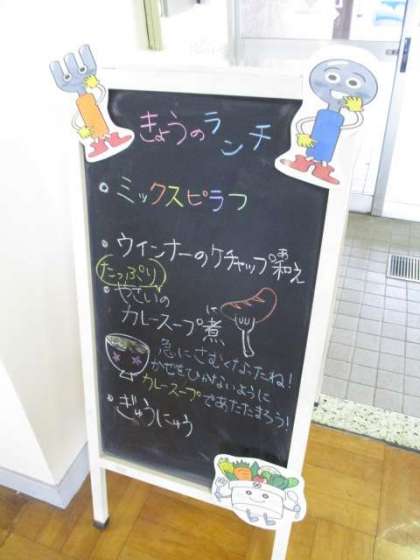 きょうのランチ
・ミックスピラフ
・ウィンナーのケチャップ和え
あ
たっぷり
・やさいの
カレースープ煮
に
急にさむくなったね！
かぜをひかないように
カレースープであたたまろう！
・ぎゅうにゅう